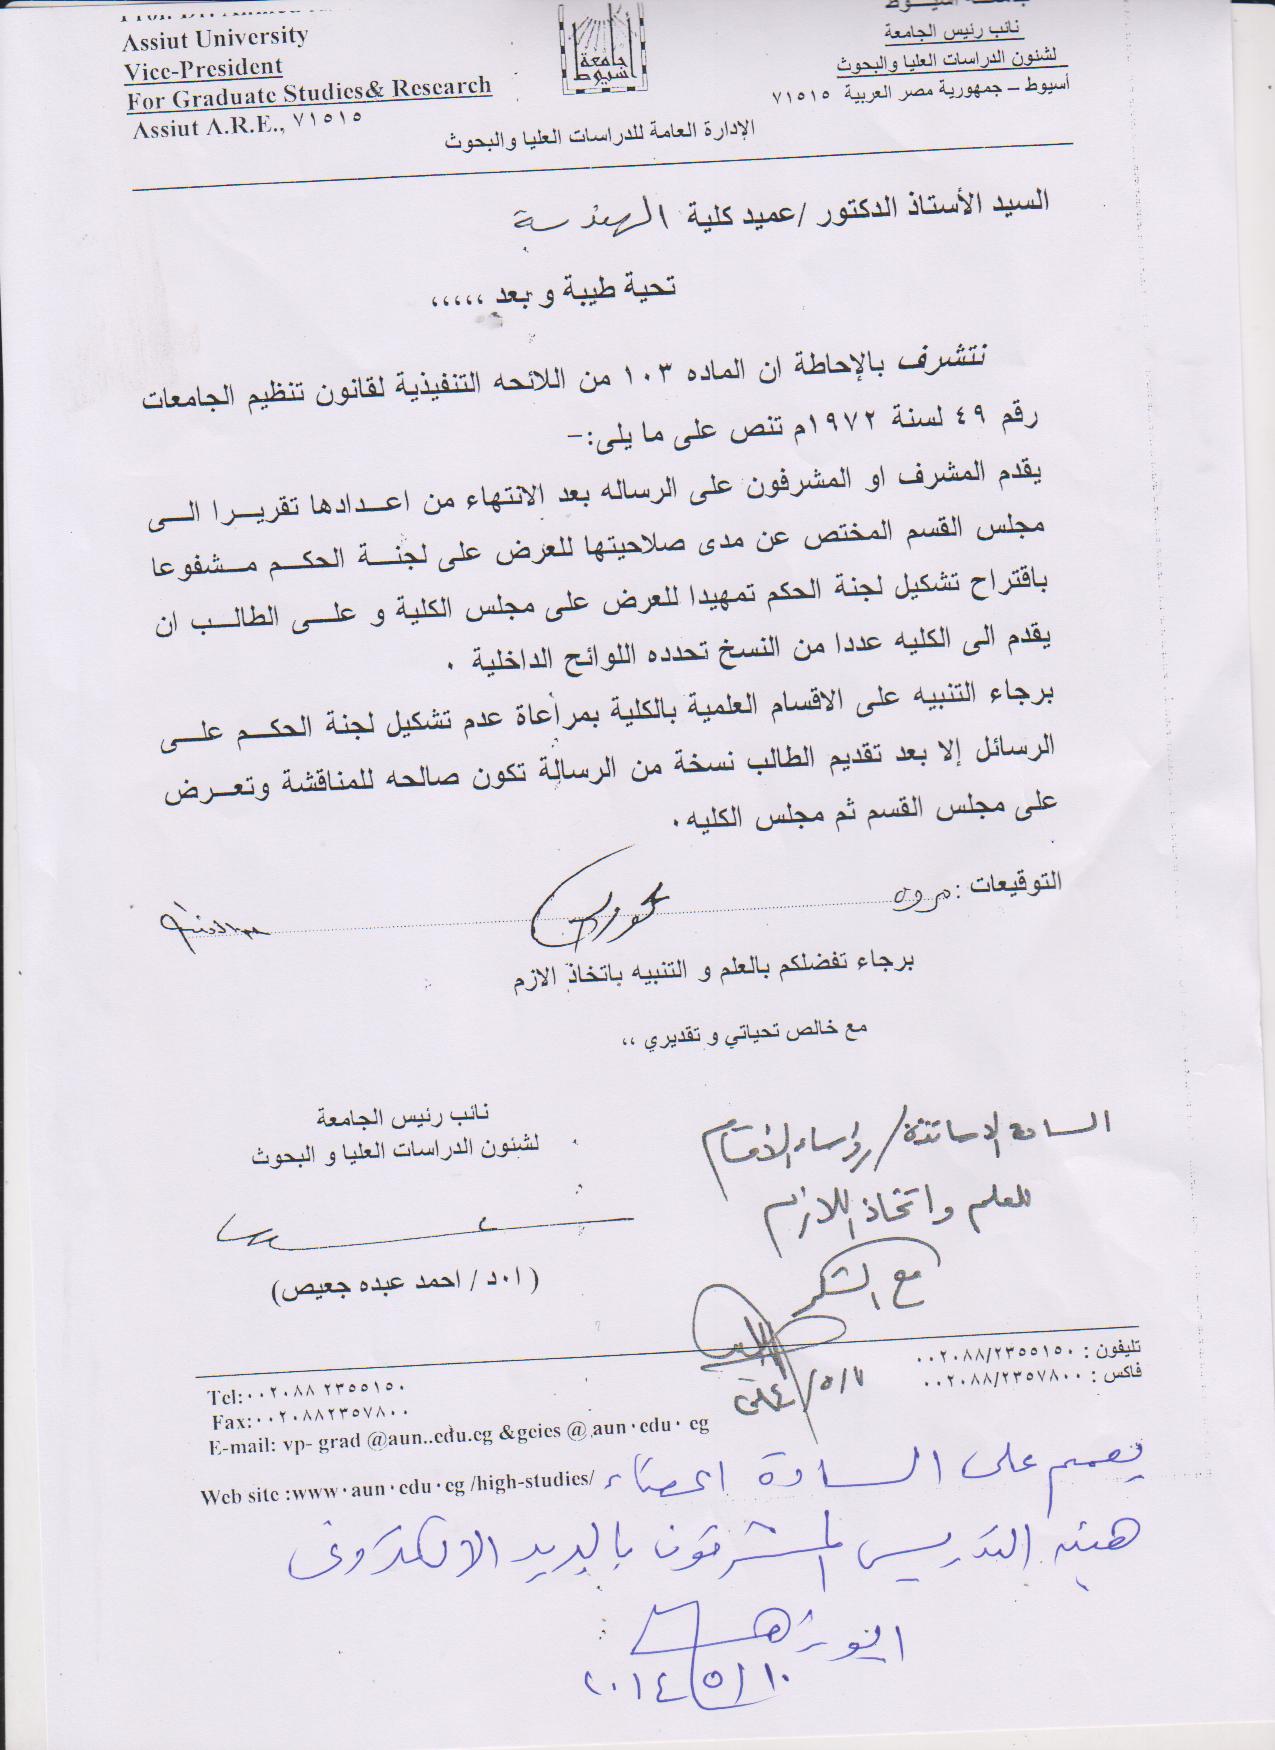 Assiut University
Vice-President
For Graduate Studies& Research
Assiut A.R.E., ٧١٥١٥
جامعة
أسيوط
نائب رئيس الجامعة
لشئون الدراسات العليا والبحوث
أسيوط – جمهورية مصر العربية ٧١٥١٥
الإدارة العامة للدراسات العليا والبحوث
السيد الأستاذ الدكتور /عميد كلية الهندسة
تحية طيبة و بعد ،،،،،
نتشرف بالإحاطة ان الماده ١٠٣ من اللائحه التنفيذية لقانون تنظيم الجامعات
رقم ٤٩ لسنة ١٩٧٢م تنص على ما يلى:-
يقدم المشرف او المشرفون على الرساله بعد الانتهاء من اعدادها تقريرا الى
مجلس القسم المختص عن مدى صلاحيتها للعرض على لجنة الحكم مشفوعا
باقتراح تشكيل لجنة الحكم تمهيدا للعرض على مجلس الكلية و على الطالب ان
يقدم الى الكليه عددا من النسخ تحدده اللوائح الداخلية .
برجاء التنبيه على الاقسام العلمية بالكلية بمراعاة عدم تشكيل لجنة الحكم على
الرسائل إلا بعد تقديم الطالب نسخة من الرسالة تكون صالحه للمناقشة وتعرض
على مجلس القسم ثم مجلس الكليه.
التوقيعات : مروه
برجاء تفضلكم بالعلم و التنبيه باتخاذ الازم
مع خالص تحياتي و تقديري ،،
نائب رئيس الجامعة
لشئون الدراسات العليا و البحوث
( ا٠د / احمد عبده جعيص)
السادة الاساتذة / رؤساء الأقسام
للعلم واتخاذ اللازم
مع الشكر
تليفون : ٠٠٢٠٨٨/٢٣٥٥١٥٠
فاكس : ٠٠٢٠٨٨/٢٣٥٧٨٠٠
Tel:٠٠٢٠٨٨ ٢٣٥٥١٥٠
Fax:٠٠٢٠٨٨٢٣٥٧٨٠٠
E-mail: vp- grad @aun..edu.eg &gcics @ aun٠edu٠ eg
Web site :www٠aun٠edu٠eg /high-studies/
يعمم على السادة اعضاء
هيئة التدريس المشرفون بالبريد الالكترونى
٢٠١٤/٥/١٠